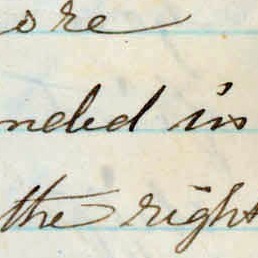 ore
nded in
the right